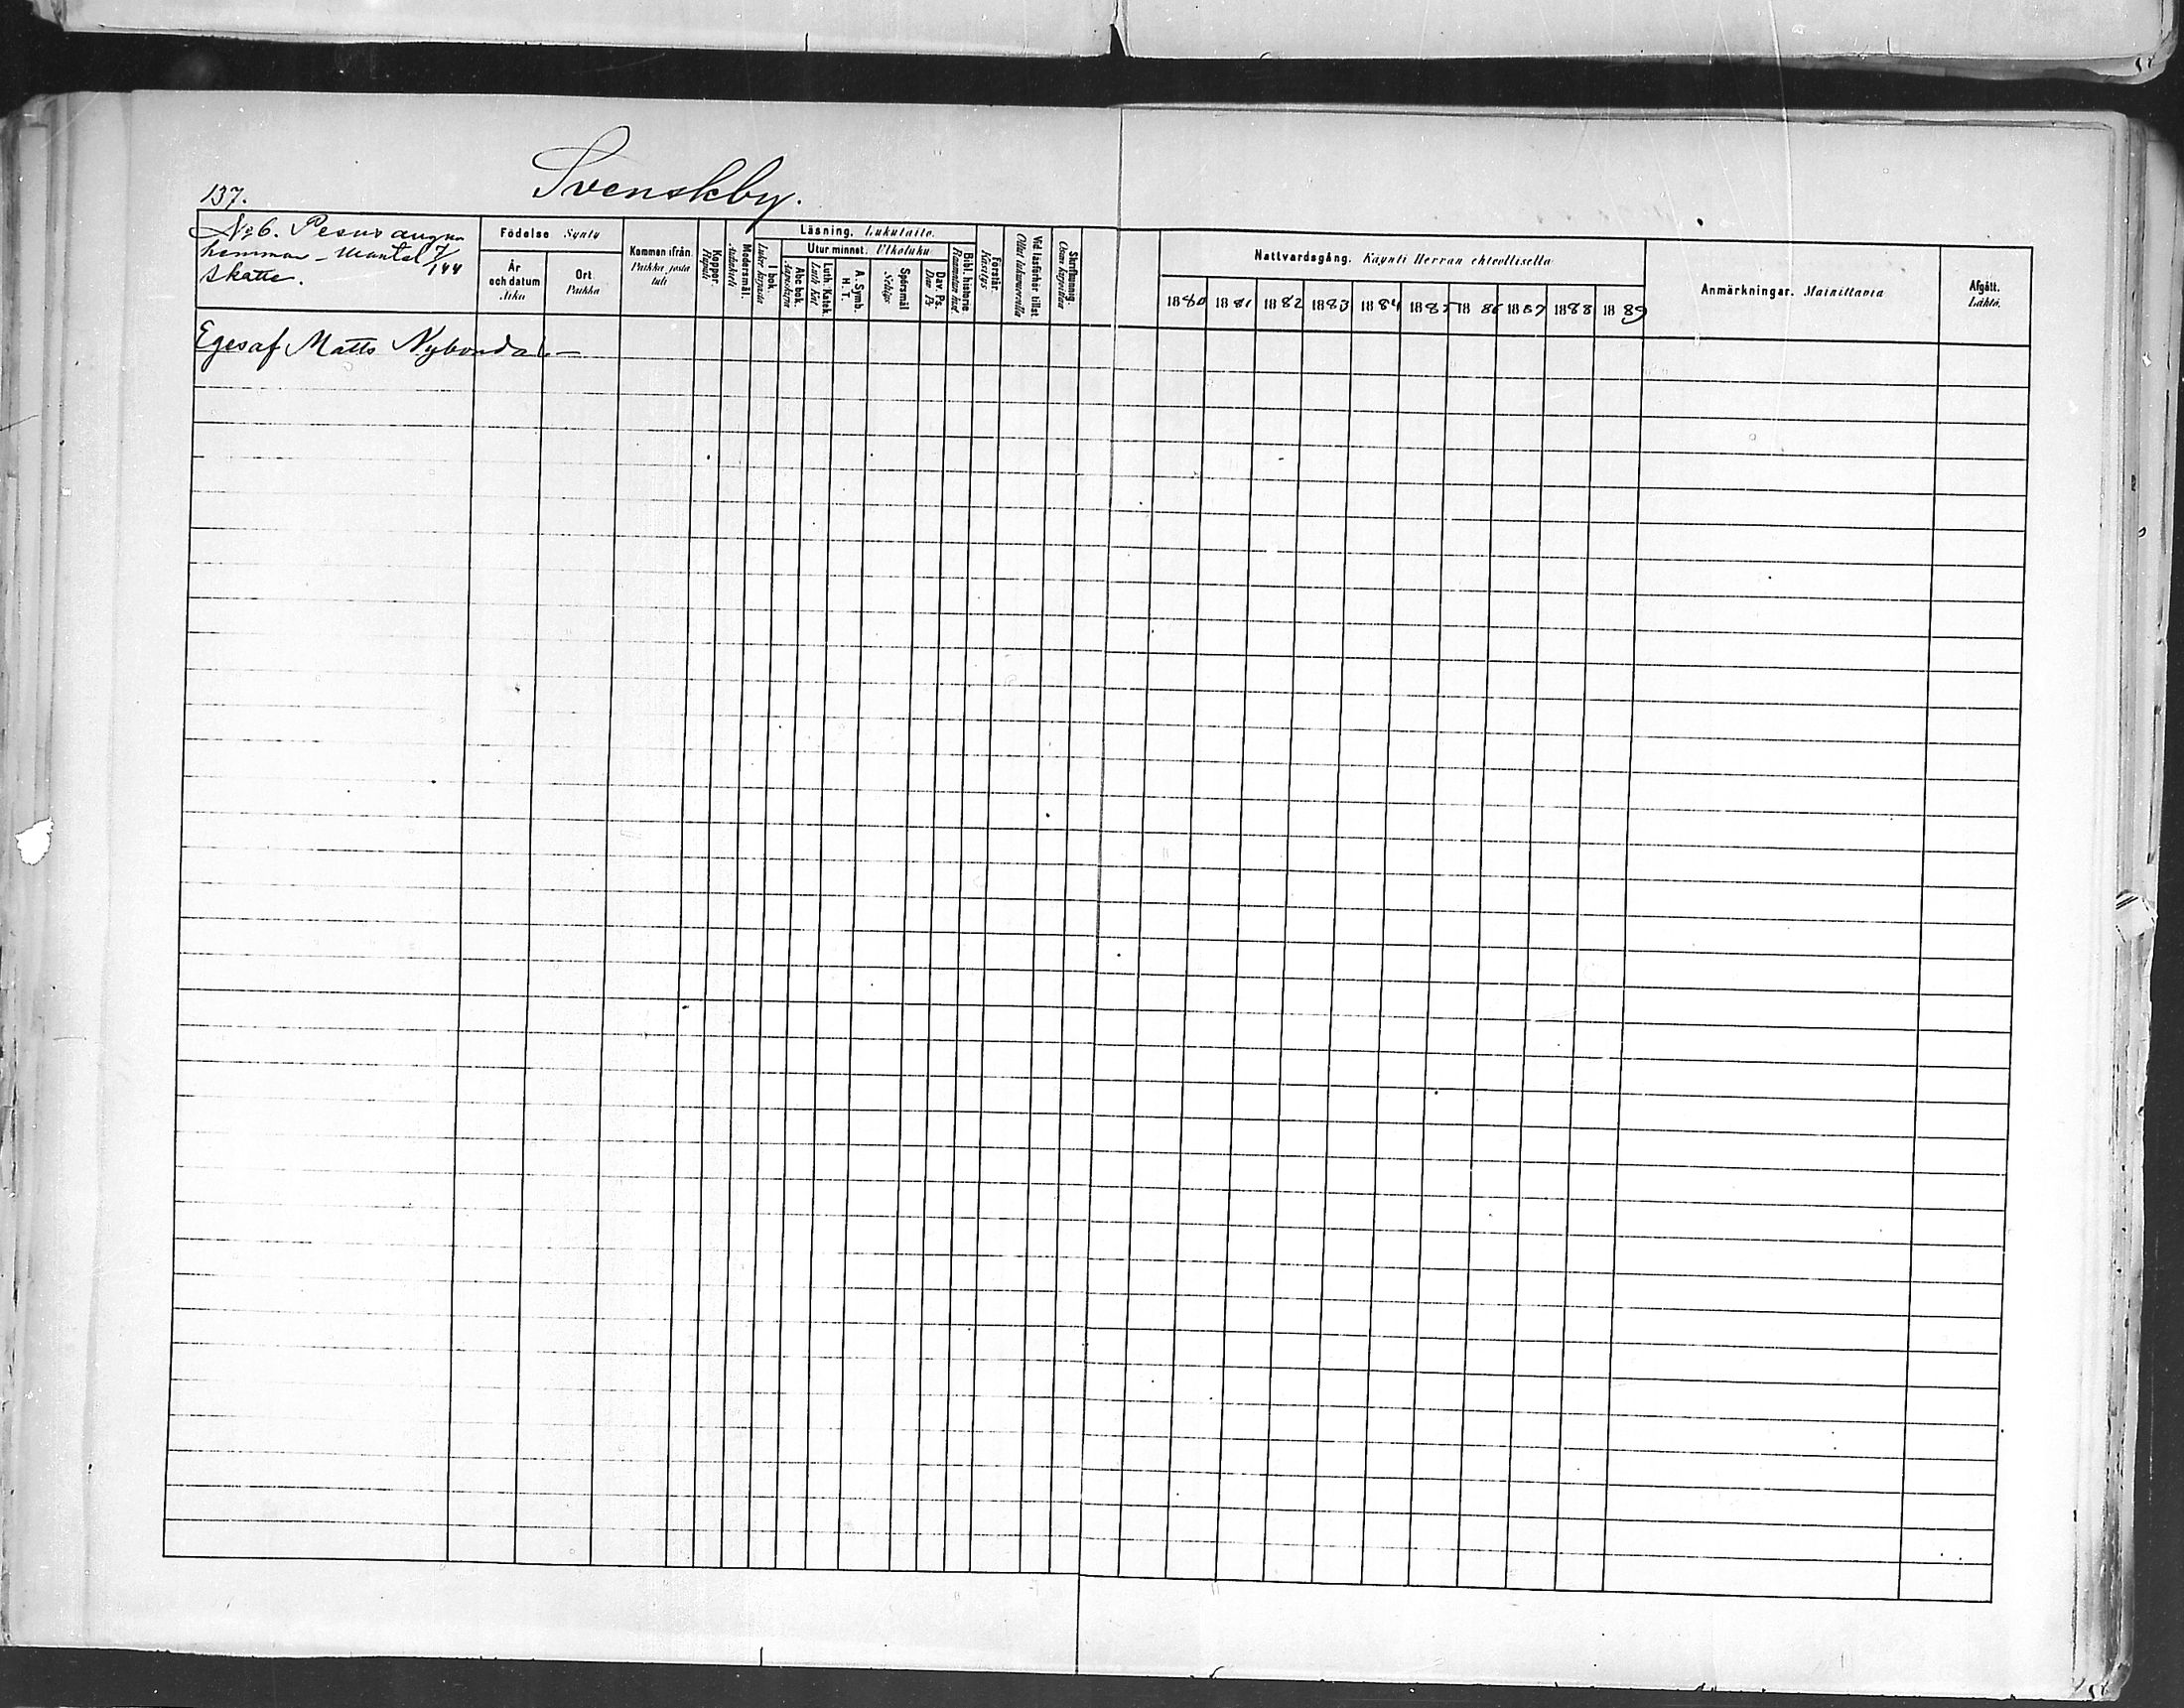 137.
Svenskby.
No 6. Pesus augna
hemman – Mantal 7/144
Skatte.
Födelse Synty
År och datum Aika
Ort. Paikka
Kommen ifrån. Paikka, josta tuli
Koppor. Rupuli
Modersmål. Äidinkieli
Läsning. Lukutaito.
I bok. Lukee kirjasta
Utur minnet. Ulkoluku
Abc bok. Aapiskirja
Luth. Katek. Luth. Kat.
A. Symb. H. T.
Spörsmål Selitys
Dav. Ps. Dav. Ps.
Bibl. historie Raamatun hist.
Förstår. Käsitys
Vid läsförhör tillst. Ollut lukuvuorolla
Skrifkunnig. Osaa kirjoittaa
Nattvardsgång. Käynti Herran ehtoollisella
1880 1881 1882 1883 1884 1885 1886 1887 1888 1889
Anmärkningar. Mainittavia
Afgått. Lähtö.
Eges af Matts Nybonda 6 –